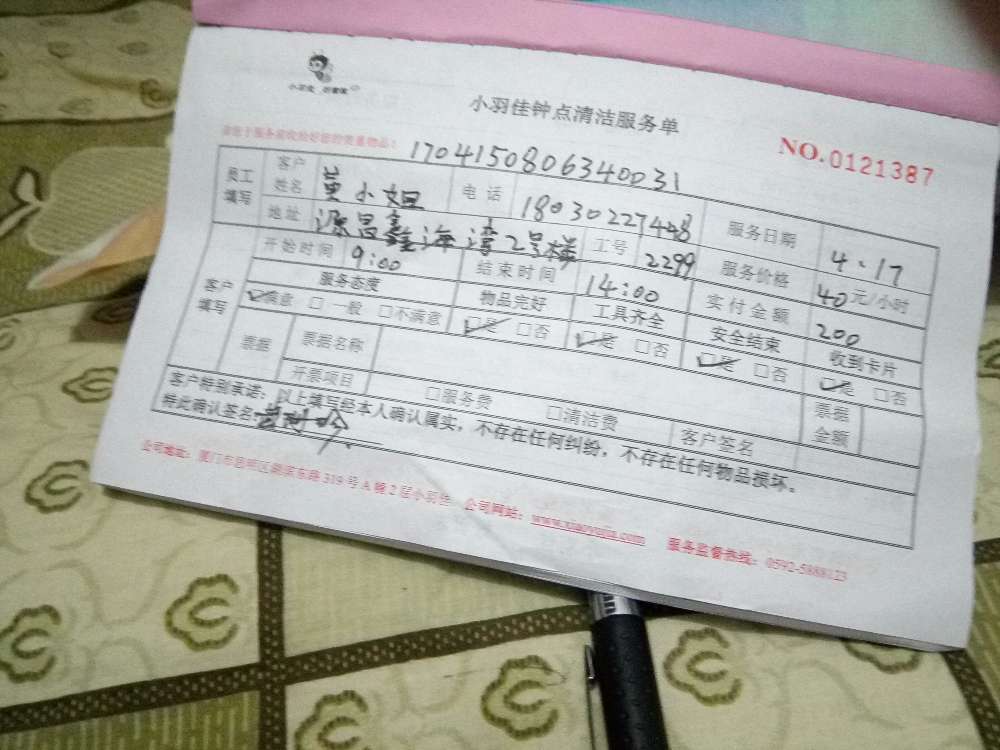 小羽佳 好管家
小羽佳钟点清洁服务单
NO.0121387
1704150806340031
员工填写 客户姓名 黄小姐 电话 18030227448 服务日期 4、17
地址 源昌鑫海湾2号楼 工号 2299 服务价格 40元/小时
客户填写 开始时间 9:00 结束时间 14:00 实付金额 200
服务态度 物品完好 工具齐全 安全结束 收到卡片
☑满意 □一般 □不满意 ☑是 □否 ☑是 □否 ☑是 □否 ☑是 □否
票据 票据名称 票据金额
开票项目 □服务费 □清洁费 客户签名
客户特别承诺：以上填写经本人确认属实，不存在任何纠纷，不存在任何物品损坏。
特此确认签名:
公司地址：厦门市思明区湖滨东路319号A幢2层小羽佳 公司网站：www.xiaoyujia.com 服务监督热线：0592-5888123